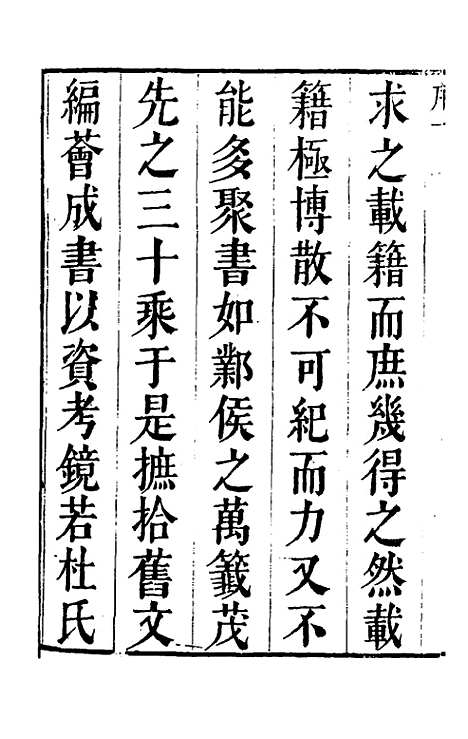 求之載籍而庶幾得之然載
籍極博散不可紀而力又不
能多聚書如鄴侯之萬籤茂
先之三十乘于是摭拾舊文
編薈成書以資考鏡若杜氏